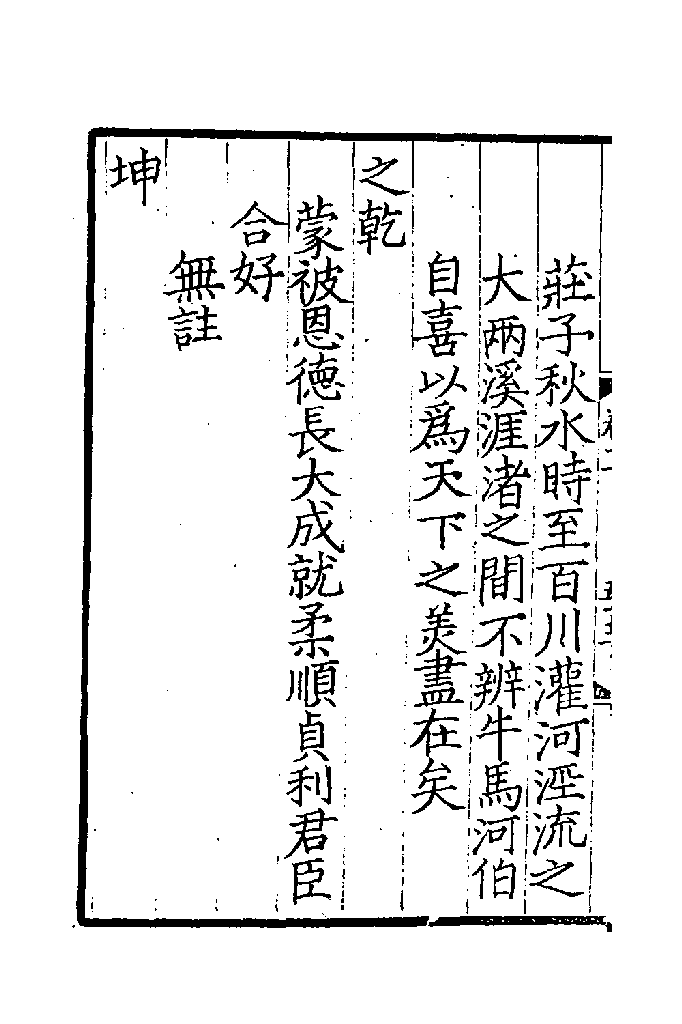 莊子秋水時至百川灌河涇流之
大兩溪涯渚之間不辨牛馬河伯
自喜以爲天下之美盡在矣
之乾
蒙被恩德長大成就柔順貞利君臣
合好
無註
坤